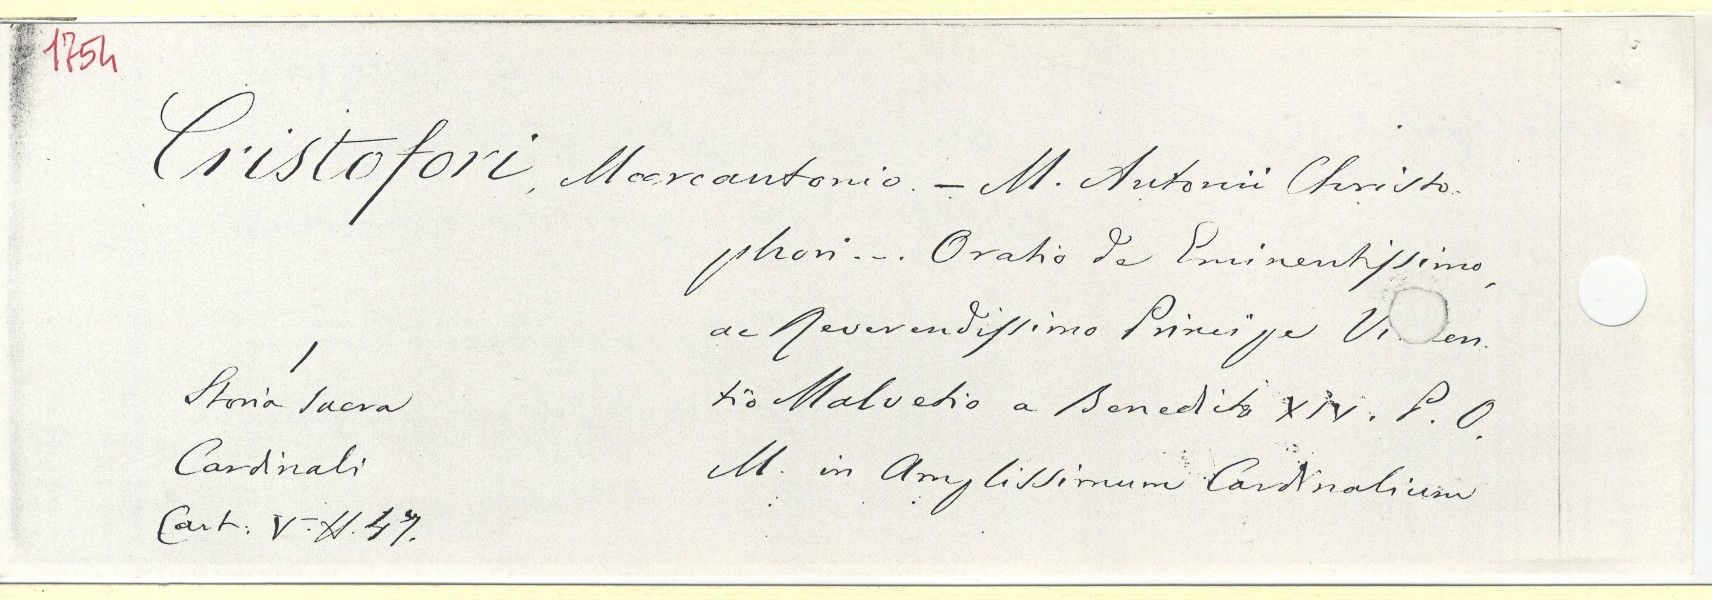 1754
Cristofori, Marcantonio. - M. Antonii Christo-
phori ... Oratio de Eminentissimo,
ac Reverendissimo Principe Vi en-
tio Malvetio a Benedicto XIV. P. O.
M. in Amplissimum Cardinalium
Storia sacra
Cardinali
Cart. V. H. 47.